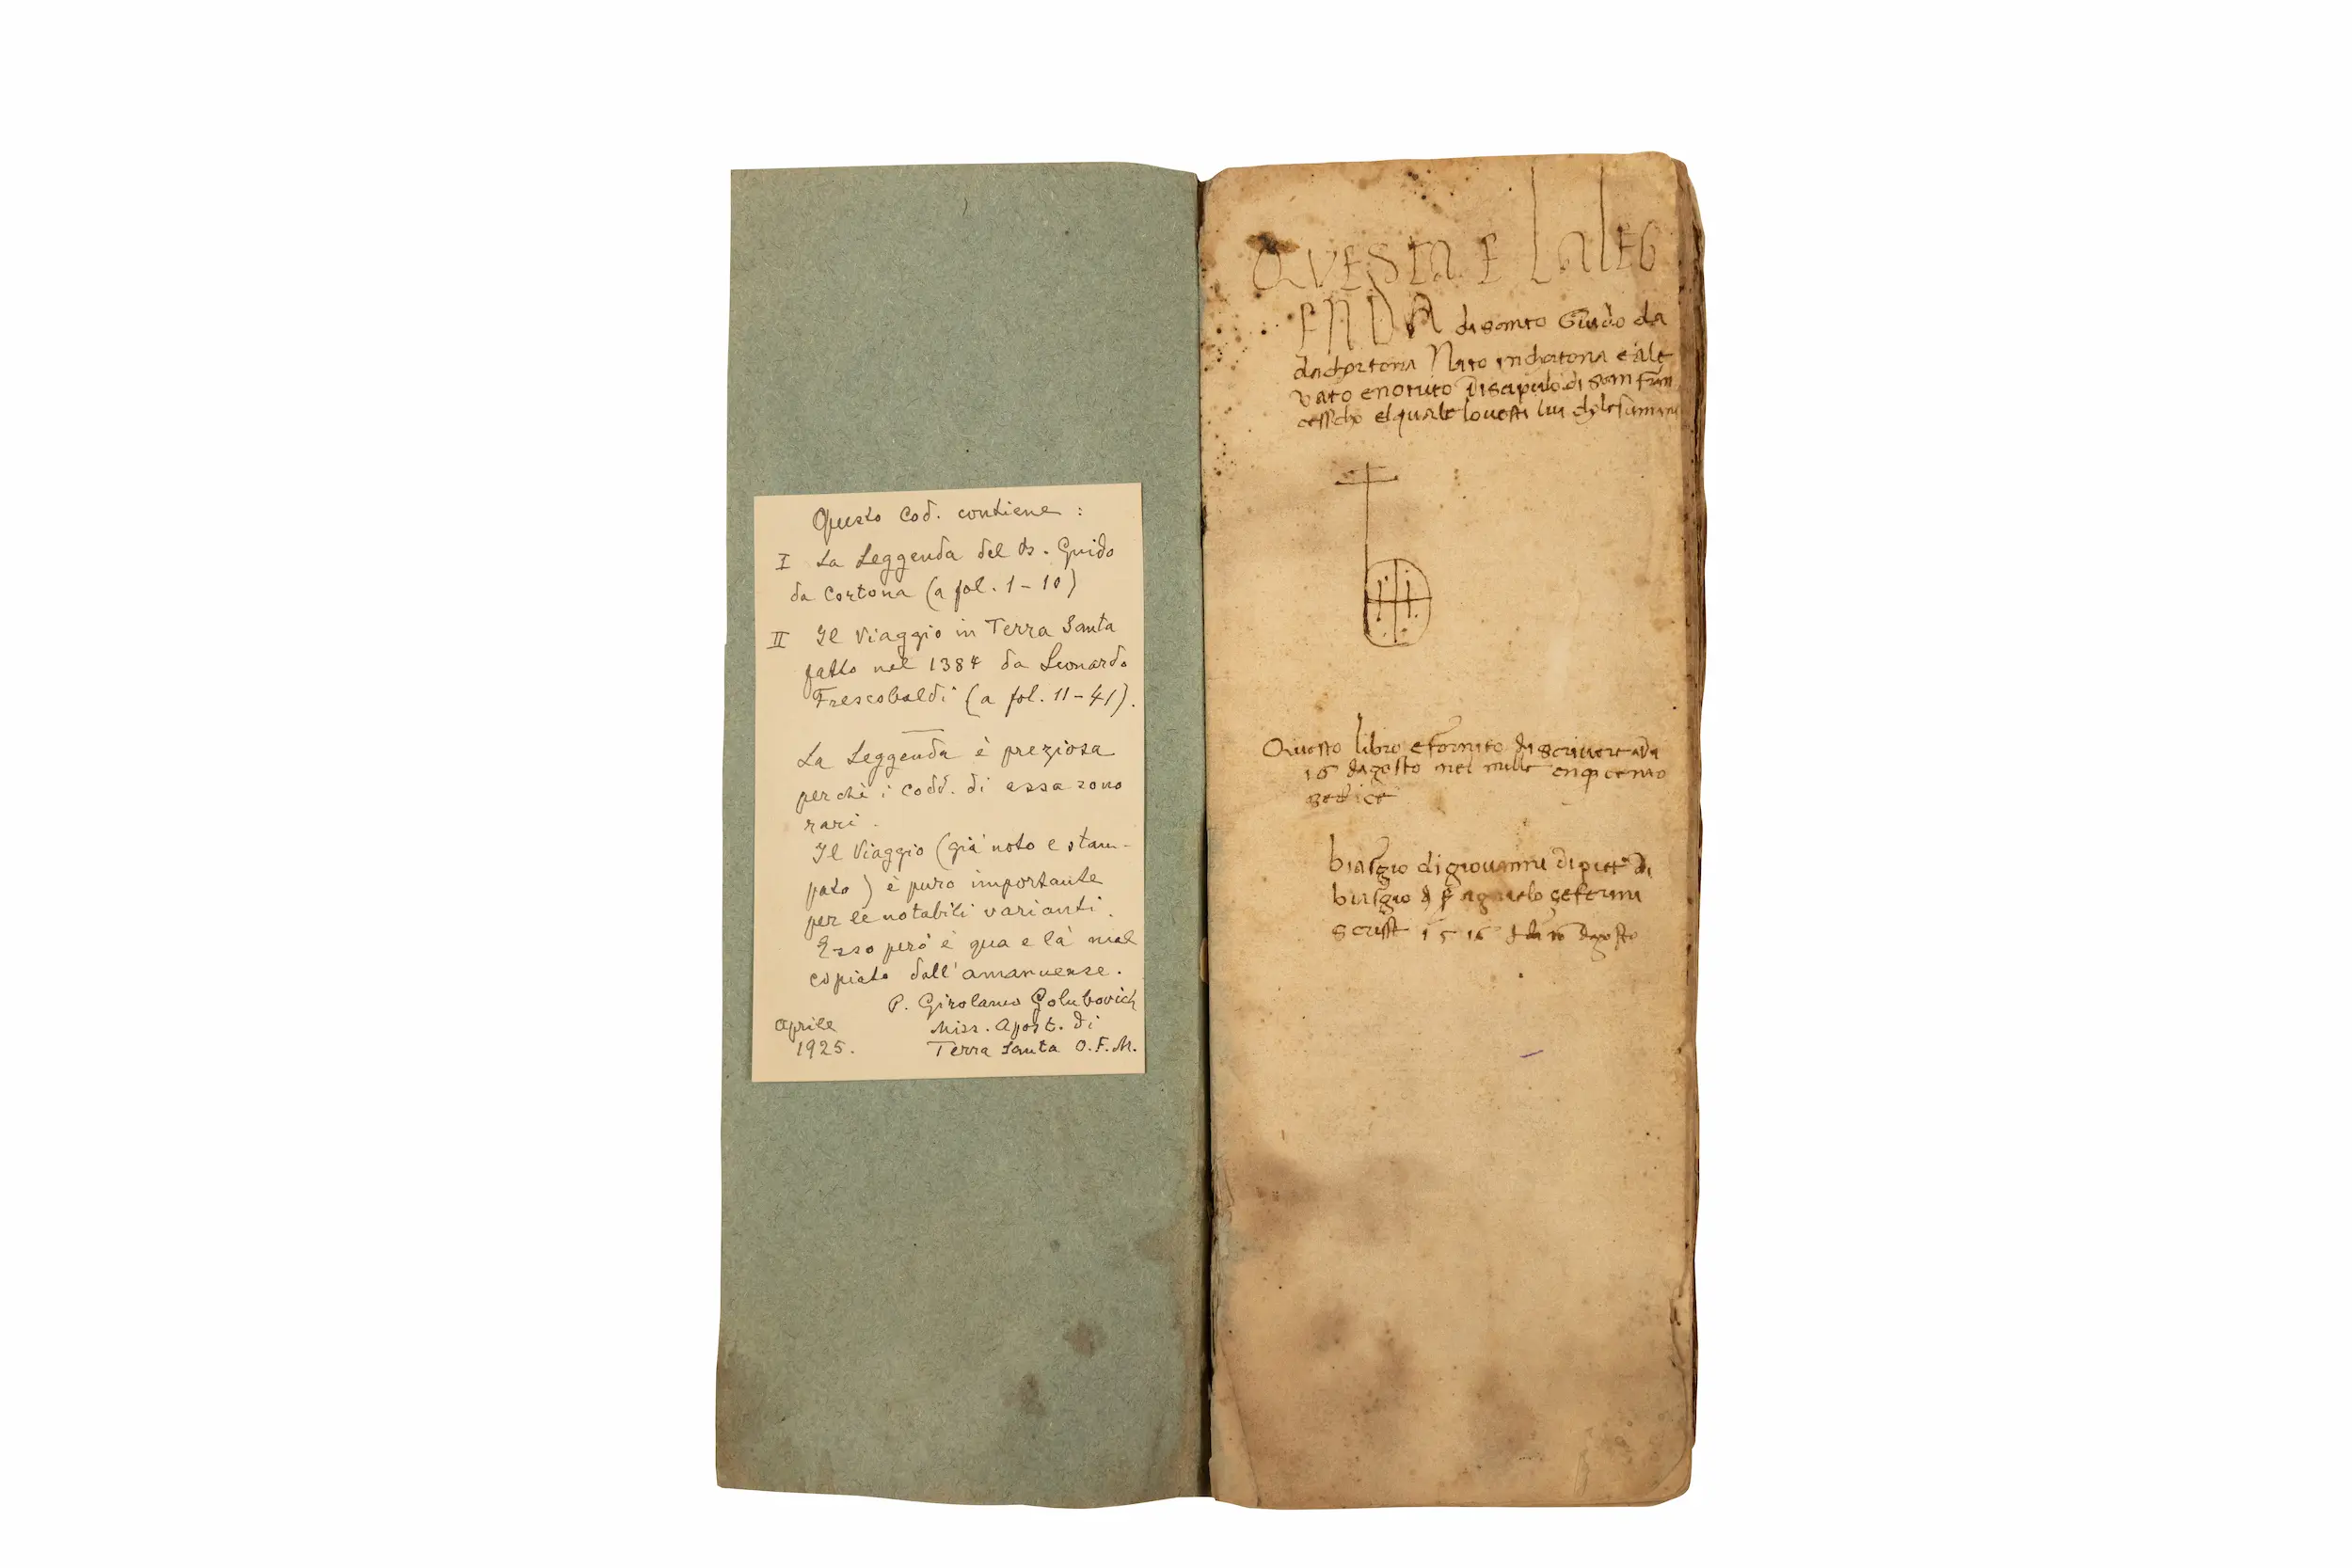 Questo Cod. contiene :
I La Leggenda del B. Guido
da Cortona (a fol. 1-10)
II Il Viaggio in Terra Santa
fatto nel 1384 da Leonardo
Frescobaldi (a fol. 11-41).
La Leggenda è preziosa
perchè i Codd. di essa sono
rari.
Il Viaggio (già noto e stam-
pato) è puro importante
per le notabili varianti.
Esso però è qua e là mal
copiato dall'amanuense.
P. Girolamo Golubovich
Miss. Apost. di
Terra Santa O.F.M.
Aprile
1925.
QVESTA E LALEG
ENDA di santo Guido da
dachortona Nato inchortona e ale
vato enotrito disciepolo di san Fran
cesscho elquale lovesti lui
Questo libro e fornito di scrivere adi
16 dagosto nel mille cinqucento
sedice
biasgio di giovanni di
biasgio
scrisse 1516 adi 16 dagosto